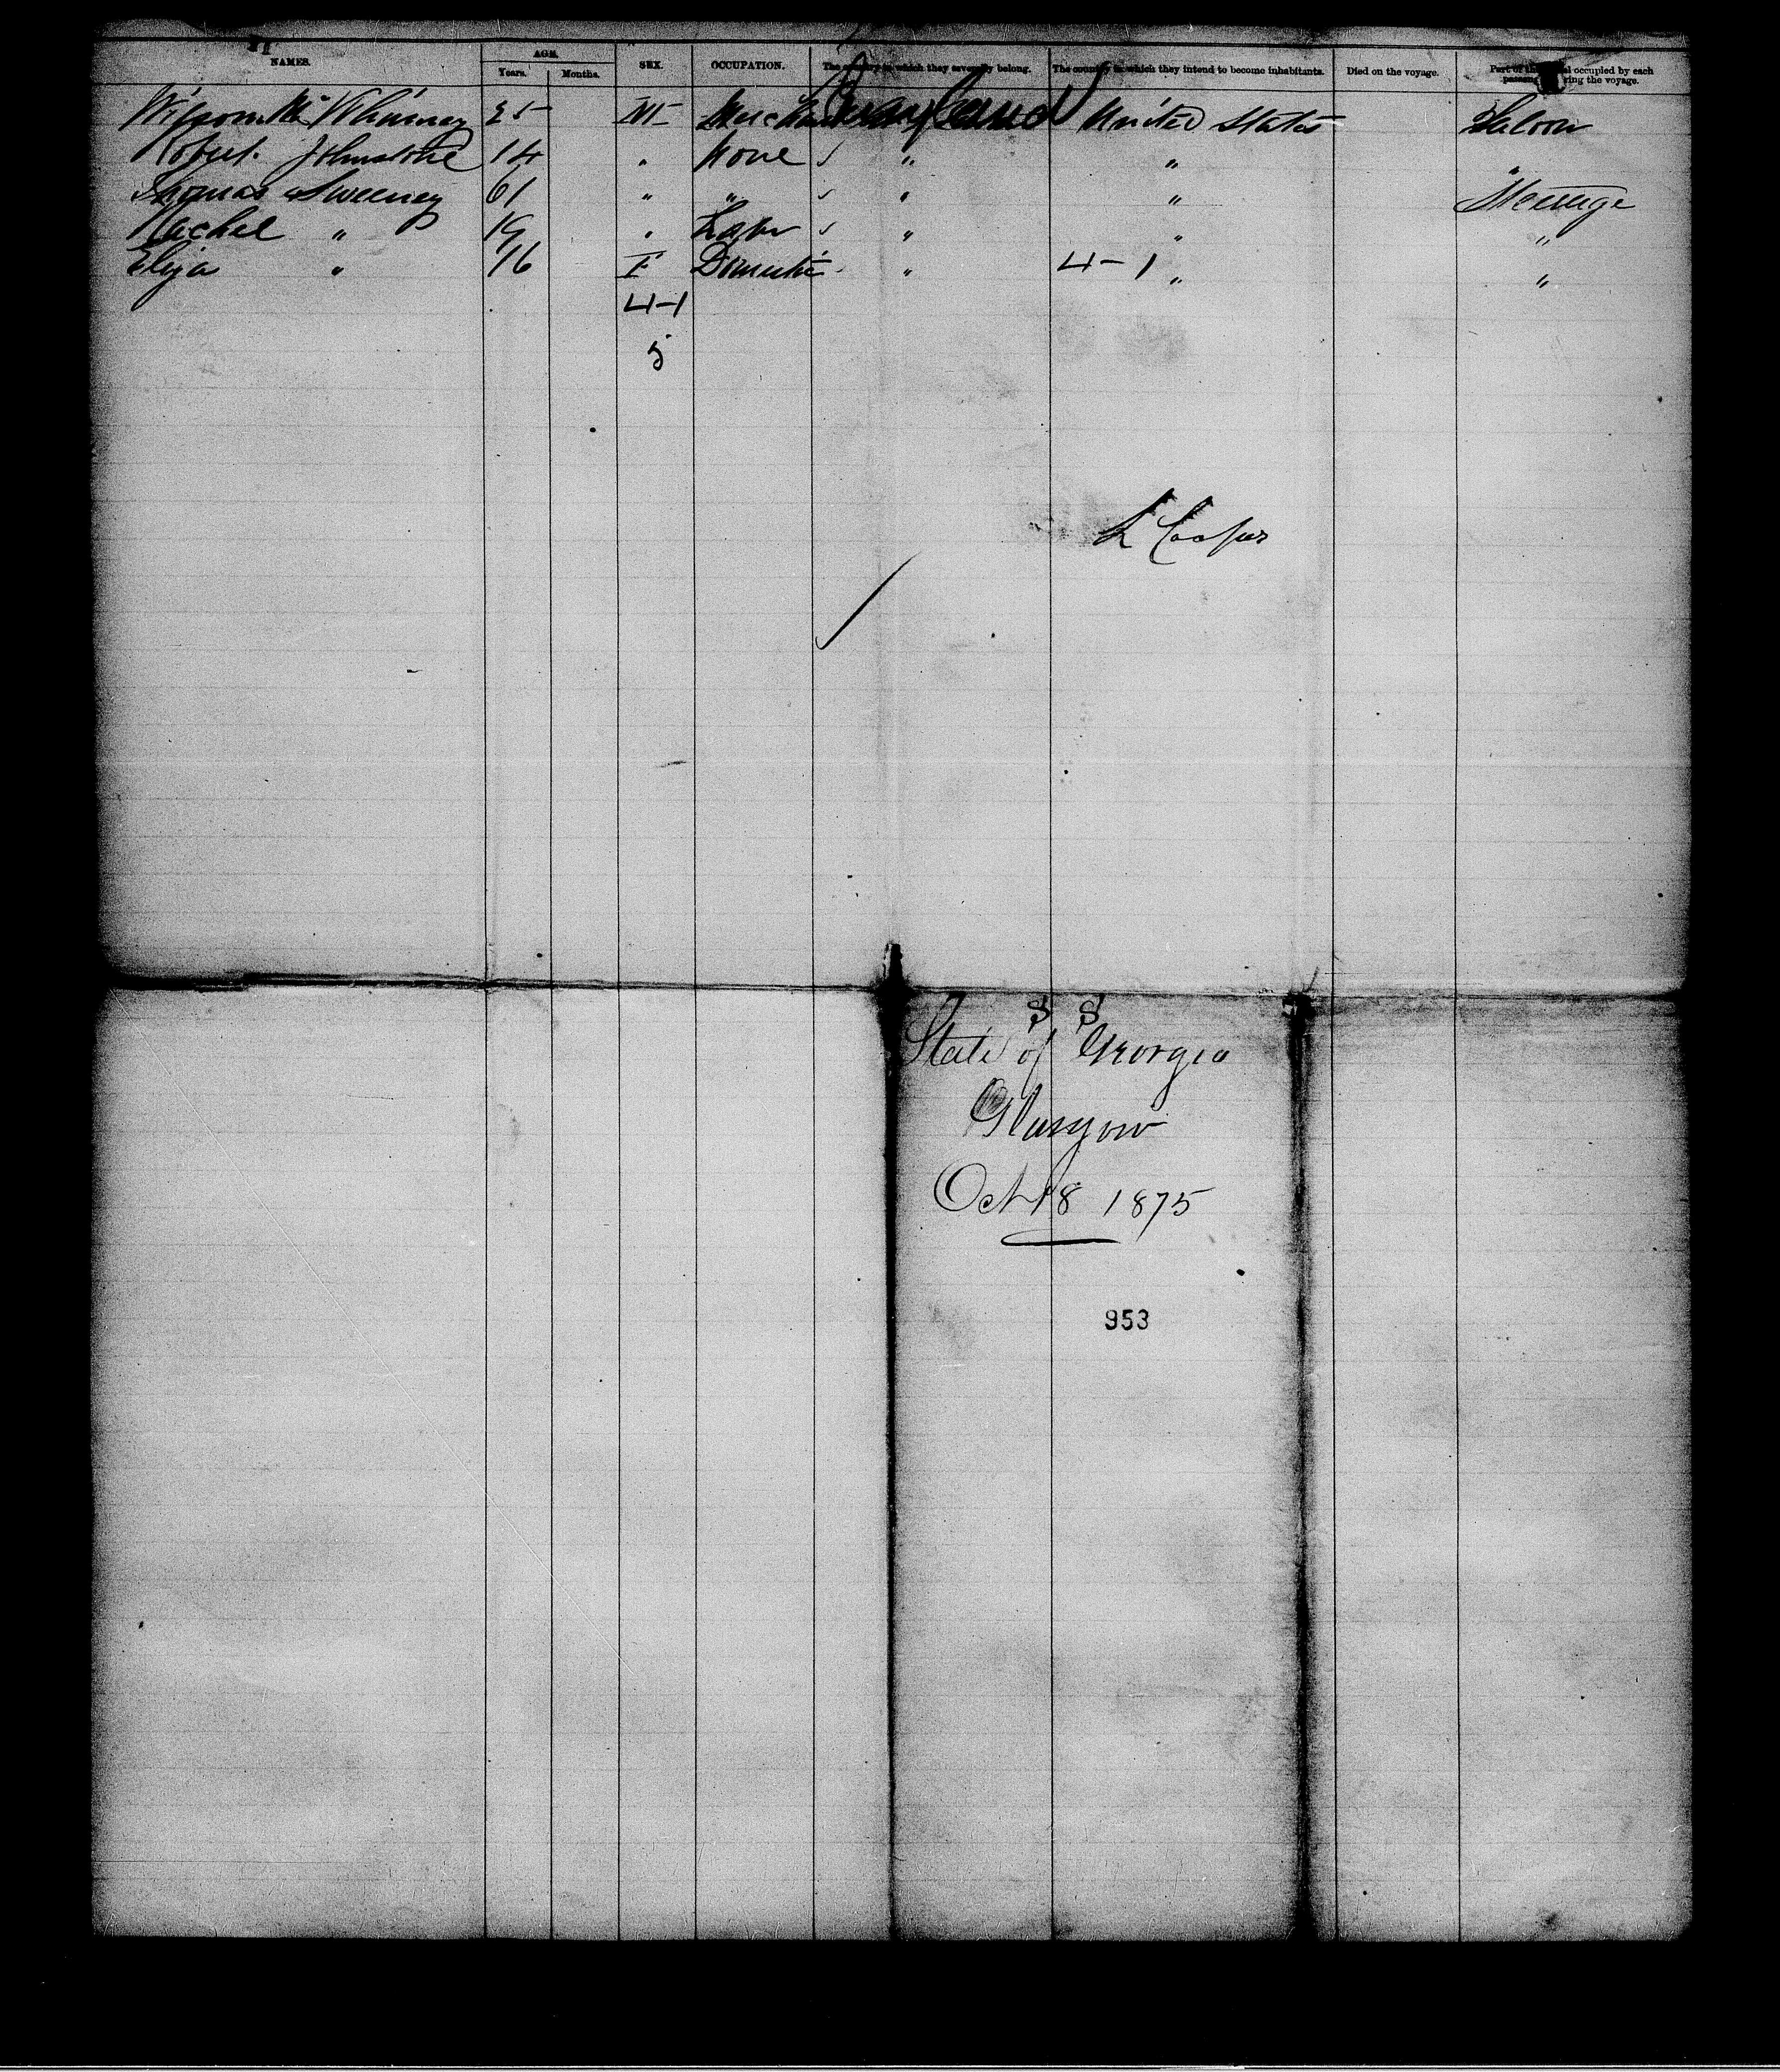 NAMES. AGE. SEX. OCCUPATION. The country to which they severally belong. The country in which they intend to become inhabitants. Died on the voyage. Part of the occupied by each
Years. Months. ring the voyage.
25 M Merchant United States Saloon
Robert Johnstone 14 " None " " "
Thomas Sweeney 61 " " " " Steerage
Rachel " 19 " Labr " " "
Eliza " 16 F Domestic " 4-1 " "
4-1
5
L Cooper
S S
State of Georgia
Glasgow
Oct 18 1875
953